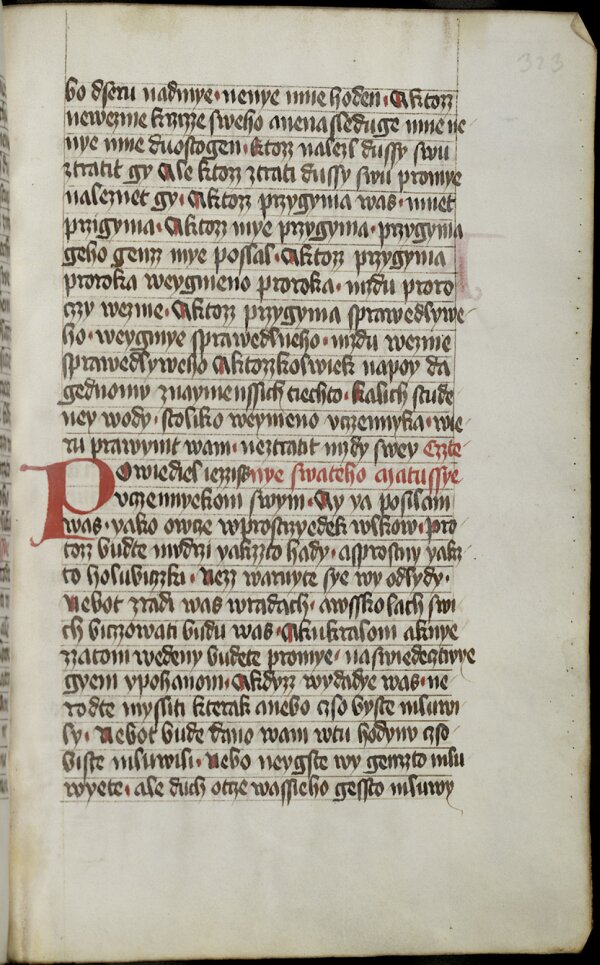 323
bo dseru nadmye · nenye mne hoden · A ktozz
newezme krzize sweho anenasleduge mne ne
nye mne duostogen · ktoz nalezl dussy swu
ztratit gy Ale ktoz ztrati dussy swu promye
naleznet gy · A ktozz przygyma was · mnet
przigyma · A ktozz mye przygyma · przygyma
geho genz mye poslal · A ktozz przygyma
proroka weygmeno proroka · mzdu proro
czy wezme · A ktozz przygyma sprawedlywe
ho · weygmye sprawedlneho · mzdu wezme
sprawedlyweho A ktozzkolwiek napoy da
gednomu znaymenssich tiechto · kalich stude
ney wody · stoliko weymeno vczennyka · wie
ru prawymt wam · neztratit mzdy swey Czte
Powiediel iezziss nye swateho Matussye
vczennyekom swym · Ay ya posilam
was · yako owcze wprostrzyedek wlkow · Pro
toz budte mudri yakzto hady · asprostny yakz
to holubiczki · Nezz waruyte sye wy odlydy ·
Nebot zradi was wradach · awsskolach swi
ch biczowati budu was · A kukralom aknye
zzatom wedeny budete promye · naswiedecztwye
gyem ypohanom · A kdyzz wydadye was · ne
rodte mysliti kterak anebo czso byste mluwi
ly · Nebot bude dano wam wtu hodynu czso
biste mluwili · Nebo neygste wy genzto mlu
wyete · ale duch otcze wassieho gessto mluwy